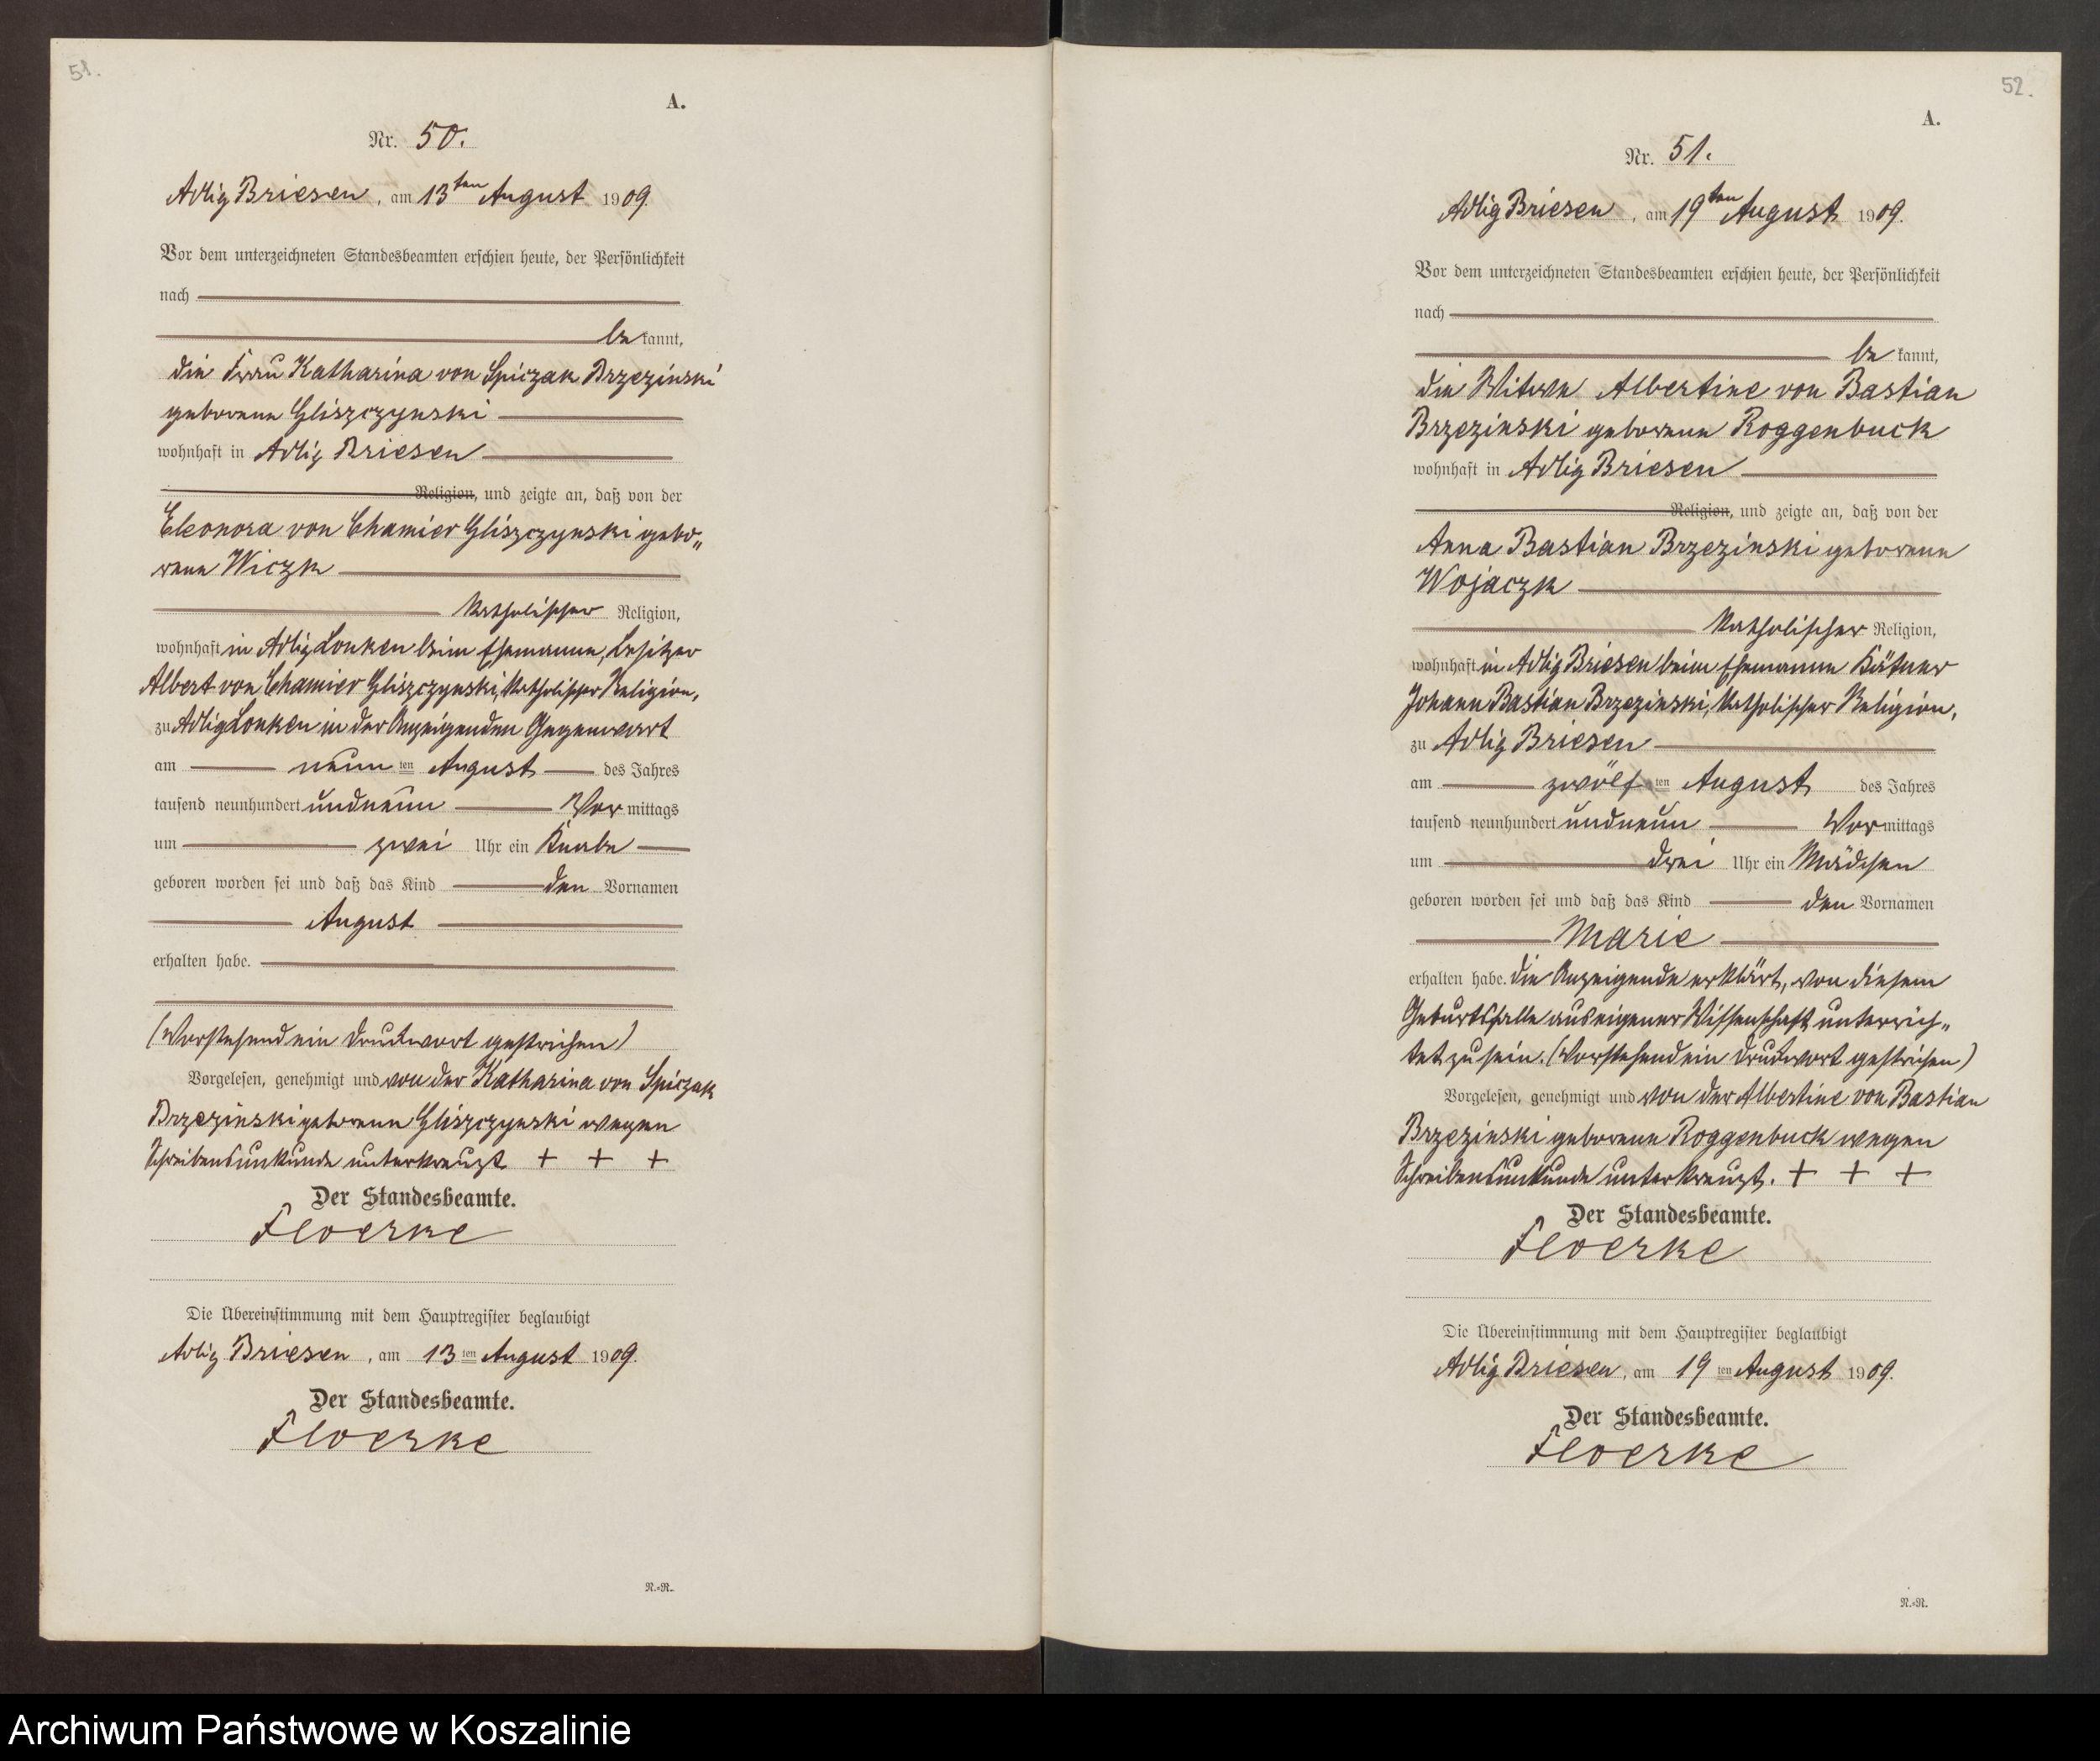 51.
A.
Nr. 50.
Adlig Briesen, am 13ten August 1909.
Vor dem unterzeichneten Standesbeamten erschien heute, der Persönlichkeit
nach
bekannt,
die Frau Katharina von Spiczak Brzezinski
geborene Gliszczynski
wohnhaft in Adlig Briesen
Religion, und zeigte an, daß von der
Eleonora von Chamier Gliszczynski gebo„
rene Wiczk
katholischer Religion,
wohnhaft in Adlig Lonken beim Ehemanne, Besitzer
Albert von Chamier Gliszczynski, katholischer Religion,
zu Adlig Lonken in der Anzeigenden Gegenwart
am neunten August des Jahres
tausend neunhundert undneun Vormittags
um zwei Uhr ein Knabe
geboren worden sei und daß das Kind den Vornamen
August
erhalten habe.
(Vorstehend ein Druckwort gestrichen)
Vorgelesen, genehmigt und von der Katharina von Spiczak
Brzezinski geborene Gliszczynski wegen
Schreibensunkunde unterkreuzt + + +
Der Standesbeamte.
Floerke
Die Übereinstimmung mit dem Hauptregister beglaubigt
Adlig Briesen, am 13ten August 1909.
Der Standesbeamte.
Floerke
N.=R.
52.
A.
Nr. 51.
Adlig Briesen, am 19ten August 1909.
Vor dem unterzeichneten Standesbeamten erschien heute, der Persönlichkeit
nach
bekannt,
die Witwe Albertine von Bastian
Brzezinski geborene Roggenbuck
wohnhaft in Adlig Briesen
Religion, und zeigte an, daß von der
Anna Bastian Brzezinski geborene
Wojaczk
katholischer Religion,
wohnhaft in Adlig Briesen beim Ehemanne Kätner
Johann Bastian Brzezinski, katholischer Religion,
zu Adlig Briesen
am zwölften August des Jahres
tausend neunhundert undneun Vormittags
um drei Uhr ein Mädchen
geboren worden sei und daß das Kind den Vornamen
Marie
erhalten habe. Die Anzeigende erklärt, von diesem
Geburtsfalle aus eigener Wissenschaft unterrich„
tet zu sein. (Vorstehend ein Druckwort gestrichen)
Vorgelesen, genehmigt und von der Albertine von Bastian
Brzezinski geborene Roggenbuck wegen
Schreibensunkunde unterkreuzt. + + +
Der Standesbeamte.
Floerke
Die Übereinstimmung mit dem Hauptregister beglaubigt
Adlig Briesen, am 19ten August 1909.
Der Standesbeamte.
Floerke
N.=R.
Archiwum Państwowe w Koszalinie